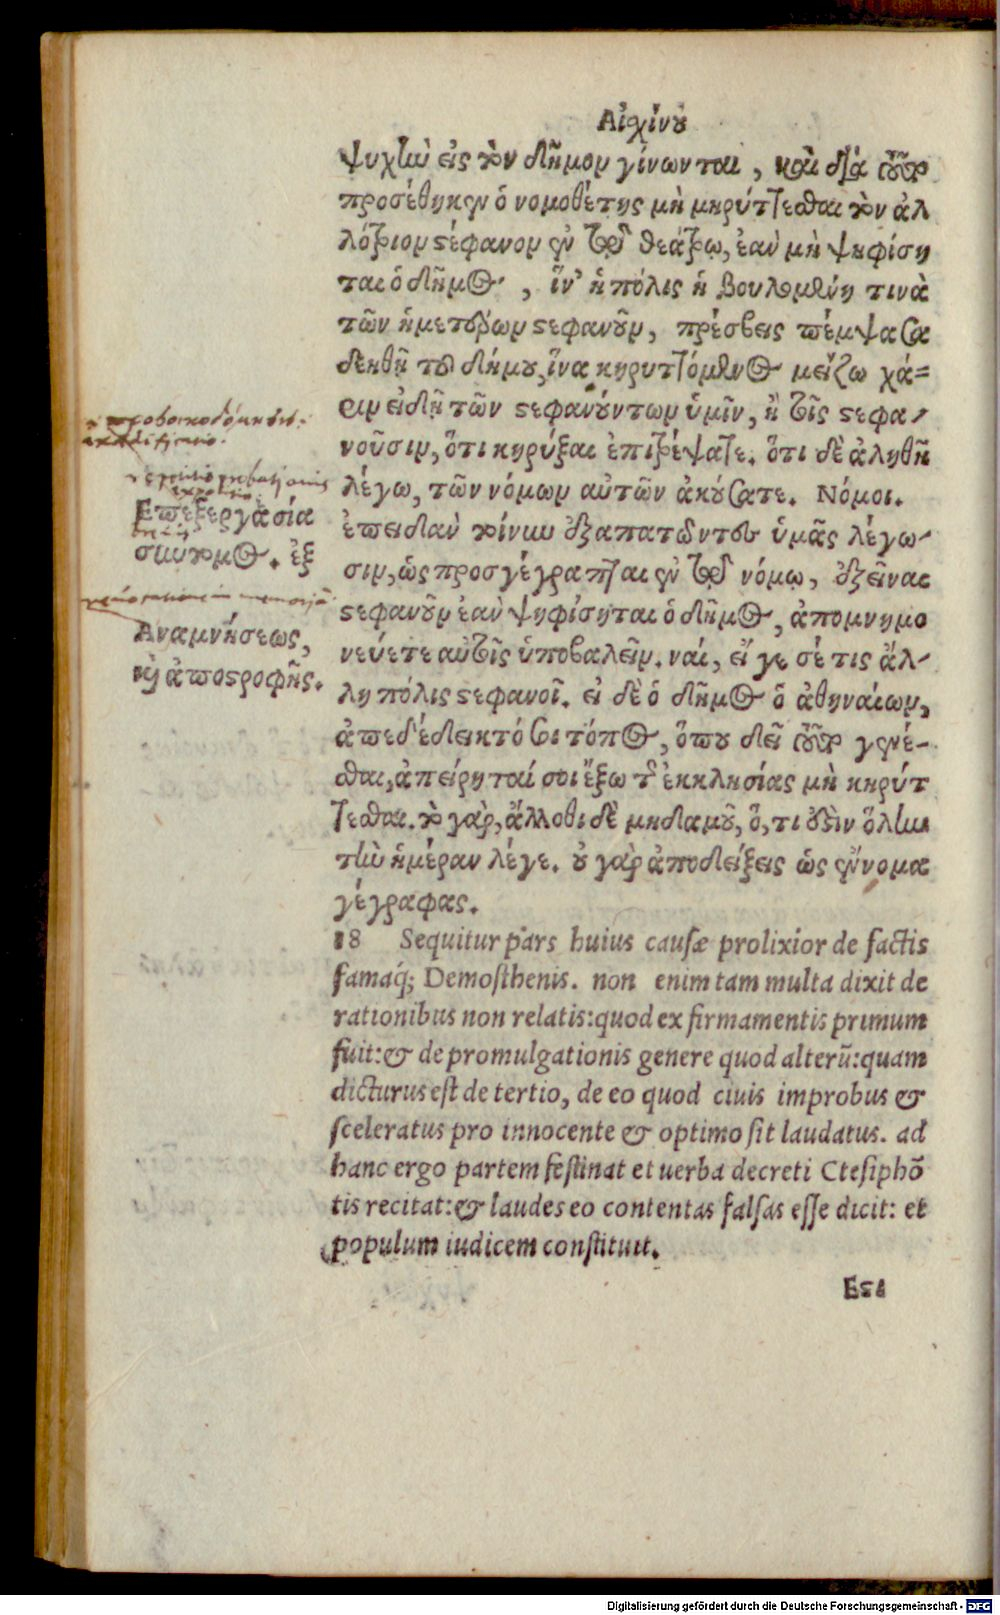 Αἰσχίνου
ψυχὴν εἰς τὸν δῆμον γίνωνται, καὶ διὰ τοῦτο
προσέθηκεν ὁ νομοθέτης μὴ κηρύττεσθαι τὸν ἀλ
λότριον στέφανον ἐν τῷ θεάτρῳ, ἐὰν μὴ ψηφίση
ται ὁ δῆμος, ἵν' ἡ πόλις ἡ βουλομένη τινὰ
τῶν ἡμετέρων στεφανοῦν, πρέσβεις πέμψασα
δεηθῇ τοῦ δήμου, ἵνα κηρυττόμενος μείζω χά=
ριν εἰδῇ τῶν στεφανούντων ὑμῖν, ἢ τοῖς στεφα
νοῦσιν, ὅτι κηρύξαι ἐπιτρέψατε. ὅτι δὲ ἀληθῆ
λέγω, τῶν νόμων αὐτῶν ἀκούσατε. Νόμοι.
ἐπειδὰν τοίνυν ἐξαπατῶντες ὑμᾶς λέγω-
σιν, ὡς προσγέγραπται ἐν τῷ νόμῳ, ἐξεῖναι
στεφανοῦν ἐὰν ψηφίσηται ὁ δῆμος, ἀπομνημο
νεύετε αὐτοῖς ὑποβαλεῖν. ναί, εἴ γε σέ τις ἄλ-
λη πόλις στεφανοῖ. εἰ δὲ ὁ δῆμος ὁ ἀθηναίων,
ἀπεδέδεικτό σοι τόπος, ὅπου δεῖ τοῦτο γενέ-
σθαι, ἀπείρηταί σοι ἔξω τῆς ἐκκλησίας μὴ κηρύτ
τεσθαι. τὸ γὰρ, ἄλλοθι δὲ μηδαμοῦ, ὅ, τι ἐστὶν ὅλην
τὴν ἡμέραν λέγε. οὐ γὰρ ἀποδείξεις ὡς ἔννομα
γέγραφας.
Επεξεργασία
σύντομος. ἐξ
Αναμνήσεως,
καὶ ἀποστροφῆς.
18 Sequitur pars huius causæ prolixior de factis
famaq; Demosthenis. non enim tam multa dixit de
rationibus non relatis:quod ex firmamentis primum
fuit:& de promulgationis genere quod alterū:quam
dicturus est de tertio, de eo quod ciuis improbus &
sceleratus pro innocente & optimo sit laudatus. ad
hanc ergo partem festinat et uerba decreti Ctesiphō
tis recitat:& laudes eo contentas falsas esse dicit: et
populum iudicem constituit.
Εστι
Digitalisierung gefördert durch die Deutsche Forschungsgemeinschaft - DFG